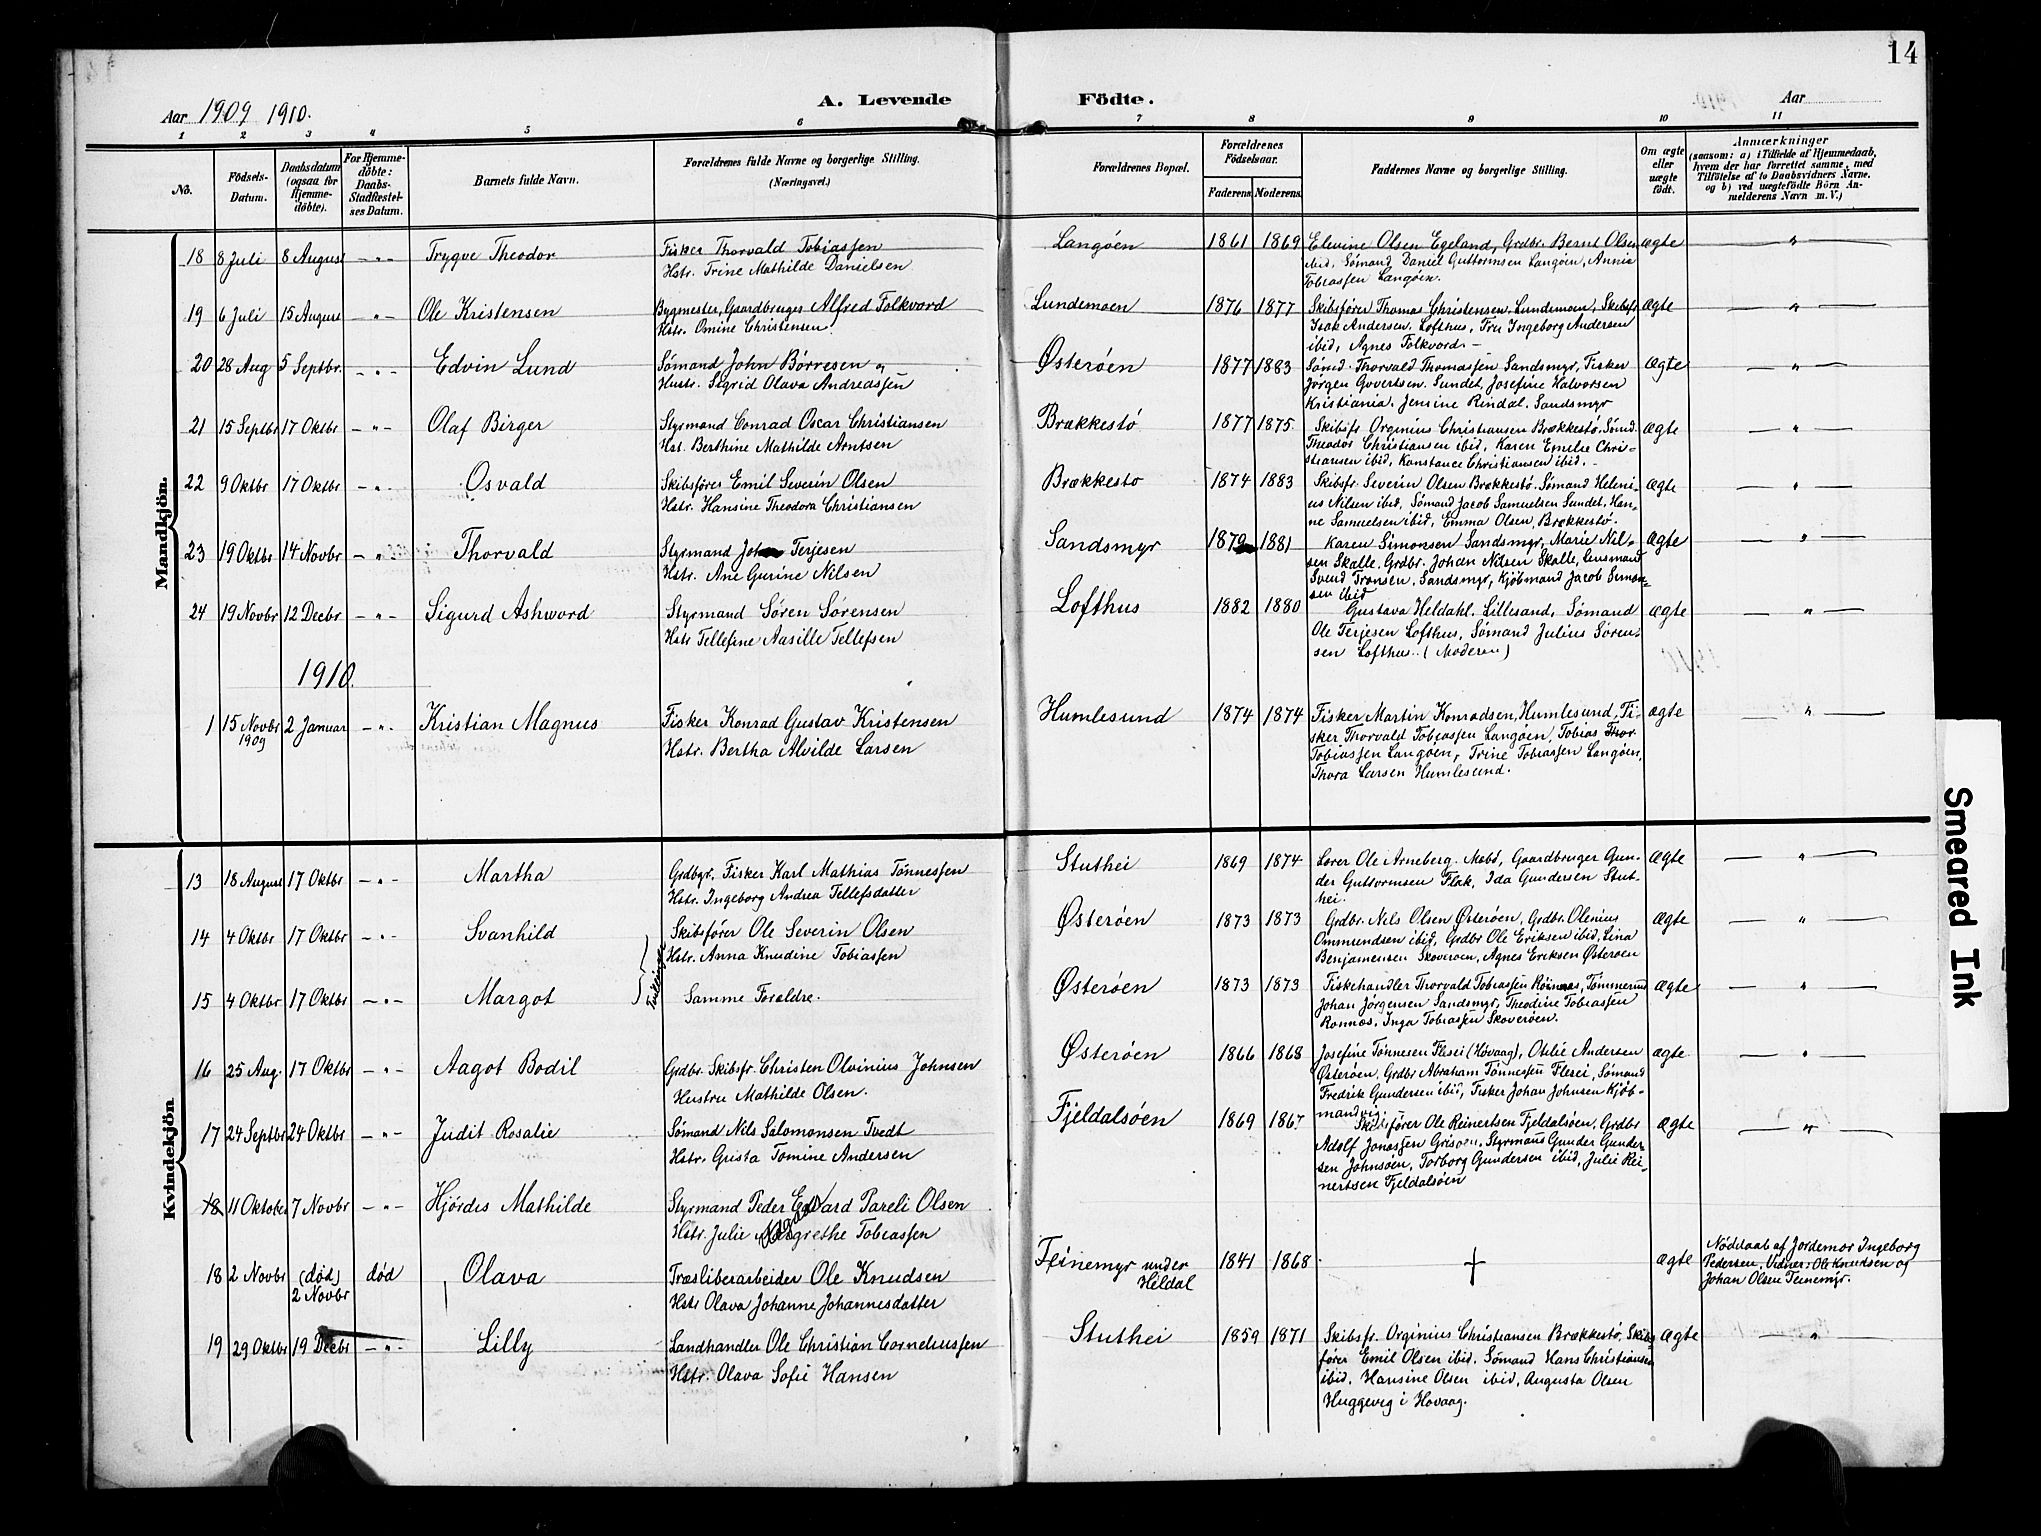 14
Aar 1909 1910.
A. Levende Födte.
Aar
1 2 3 4 5 6 7 8 9 10 11
Nô.
Födsels-Datum.
Daabsdatum (ogsaa for Hjemme-döbte).
For Hjemme-döbte: Daabs-Stadfæstel-ses Datum.
Barnets fulde Navn.
Forældrenes fulde Navne og borgerlige Stilling.
(Næringsvei.)
Forældrenes Bopæl.
Forældrenes Födselsaar.
Faderens. Moderens.
Faddernes Navne og borgerlige Stilling.
Om ægte eller uægte födt.
Anmærkninger
(saasom: a) i Tilfælde af Hjemmedaab, hvem der har forrettet samme, med Tilföielse af to Daabsvidners Navne, og b) ved uægtefödte Börn An-melderens Navn m. V.)
Mandkjön.
18 8 Juli 8 August — " — Trygve Theodor
Fisker Thorvald Tobiassen
Hstr. Trine Mathilde Danielsen
Langöen 1861 1869
Elevine Olsen Egeland, Grdbr. Bernt Olsen
ibid, Sömand Daniel Guttormsen Langöen, Annie
Tobiassen Langöen.
Ægte — " —
19 6 Juli 15 August — " — Ole Kristensen
Bygmester, Gaardbruger Alfred Folkvord
Hstr. Omine Christensen
Lundemoen 1876 1877
Skibsförer Thomas Christensen, Lundemoen, Skibsfr
Isak Andersen, Lofthus, Fru Ingeborg Andersen
ibid, Agnes Folkvord. —
Ægte — " —
20 28 Aug 5 Septbr. — " — Edvin Lund
Sömand John Börresen og
Hustr. Sigrid Olava Andreassen
Østeröen 1877 1883
Sömd. Thorvald Thomassen Sandsmyr, Fisker
Jörgen Govertsen. Sundet, Josefine Halvorsen
Kristiania. Jensine Rindal. Sandsmyr
Ægte — " —
21 15 Septbr 17 Oktbr — " — Olaf Birger
Styrmand Conrad Oscar Christiansen
Hst. Berthine Mathilde Arntsen
Brækkestö 1877 1875.
Skibsfr Orginius Christiansen Brækkestö, Sömd.
Theodor Christiansen ibid, Karen Emelie Chri-
stiansen ibid, Konstance Christiansen ibid. —
Ægte — " —
22 9 Oktbr 17 Oktbr — " — Osvald
Skibsförer Emil Severin Olsen
Hstr. Hansine Theodora Christiansen
Brækkestö 1874 1883
Skibsfr. Severin Olsen Brækkestö. Sömand Heleni-
us Nilsen ibid, Sömand Jacob Samuelsen Sundet, Han-
ne Samuelsen ibid, Emma Olsen, Brækkestö.
Ægte — " —
23 19 Oktbr 14 Novbr — " — Thorvald
Styrmand Johan Terjesen
Hstr. Ane Gurine Nilsen
Sandsmyr 1879 1881
Karen Simonsen Sandsmyr, Marie Nil-
sen Skalle, Grdbr. Johan Nilsen Skalle, Lensmand
Svend Tronsen, Sandsmyr, Kjöbmand Jacob Simon-
sen ibid
Ægte — " —
24 19 Novbr 12 Decbr — " — Sigurd Ashword
Styrmand Sören Sörensen
Hstr Tellefine Aasille Tellefsen
Lofthus 1882 1880
Gustava Heldahl, Lillesand, Sömand
Ole Terjesen Lofthus, Sömand Julius Sören-
sen Lofthus.. (Moderen)
Ægte — " —
1910.
1 15 Novbr 1909 2 Januar — " — Kristian Magnus
Fisker Konrad Gustav Kristensen
Hstr. Bertha Alvilde Larsen
Humlesund 1874 1874
Fisker Martin Konradsen, Humlesund, Fi-
sker Thorvald Tobiassen Langöen, Tobias Thor
Tobiassen Langöen, Trine Tobiassen Langöen,
Thora Larsen Humlesund.
Ægte — " —
Kvindekjön
13 18 August 17 Oktbr — " — Martha
Grdbgr. Fisker Karl Mathias Tönnessen
Hstr. Ingeborg Andrea Tellefsdatter
Stuthei 1869 1874
Lærer Ole Arneberg. Mebö, Gaardbruger Gun-
der Guttormsen Flak, Ida Gundersen Stut-
hei.
Ægte — " —
14 4 Oktbr 17 Oktbr — " — Svanhild
Skibsförer Ole Severin Olsen
Hstr. Anna Knudine Tobiassen
Tvillinger
Østeröen 1873 1873
Grdbr. Nils Olsen Østeröen, Grdbr. Olenius
Ommundsen ibid, Grdbr Ole Eriksen ibid, Lina
Benjamensen Skoveröen, Agnes Eriksen Østeröen
Ægte "
15 4 Oktbr 17 Oktbr — " — Margot
Samme Foraldre.
Østeröen 1873 1873
Fiskehandler Thorvald Tobiassen Röinæs, Tömmermd
Johan Jörgensen Sandsmyr, Theodine Tobiassen
Rönnæs, Inga Tobiassen Skoveröen.
Ægte — " —
16 25 Aug. 17 Oktbr — " — Aagot Bodil
Grdbr. Skibsfr. Christen Olvinius Johnsen
Hustru Mathilde Olsen.
Østeröen 1866 1868
Josefine Tönnesen Flesei (Hövaag), Otilie Andersen
Østeröen, Grdbr Abraham Tönnessen Flesei, Sömand
Fredrik Gundersen ibid, Fisker Johan Johnsen Kjöb-
mandvig.
Ægte — " —
17 24 Septbr 24 Oktbr — " — Judit Rosalie
Sömand Nils Salomonsen Tvedt
Hstr. Grista Tomine Andersen
Fjeldalsöen 1869 1867
Skibsförer Ole Reinertsen Fjeldalsöen, Grdbr
Adolf Jonassen Grisöen, Styrmand Gunder Gunder-
sen Johnsöen, Torborg Gundersen ibid, Julie Rei-
nertsen Fjeldalsöen
Ægte — " —
18 11 Oktober 7 Novbr — " — Hjördis Mathilde
Styrmand Peder Edvard Pareli Olsen
Hstr. Julie Margrethe Tobiassen
18 2 Novbr (död) 2 Novbr död Olava
Træsliberarbeider Ole Knudsen
Hstr Olava Johanne Johannesdatter
Teinemyr under Heldal 1841 1868
+
Ægte
Nöddaab af Jordemor Ingeborg
Pedersen, Vidner: Ole Knudsen og
Johan Olsen Teinemyr.
19 29 Oktbr 19 Decbr — " — Lilly
Landhandler Ole Christian Corneliussen
Hstr. Olava Sofie Hansen
Stuthei 1859 1871
Skibsfr. Orginius Christiansen Brækkestö, Skibs-
förer Emil Olsen ibid. Sömand Hans Christiansen
ibid, Hansine Olsen ibid, Augusta Olsen
Huggevig i Hövaag.
Ægte — " —
Smeared Ink